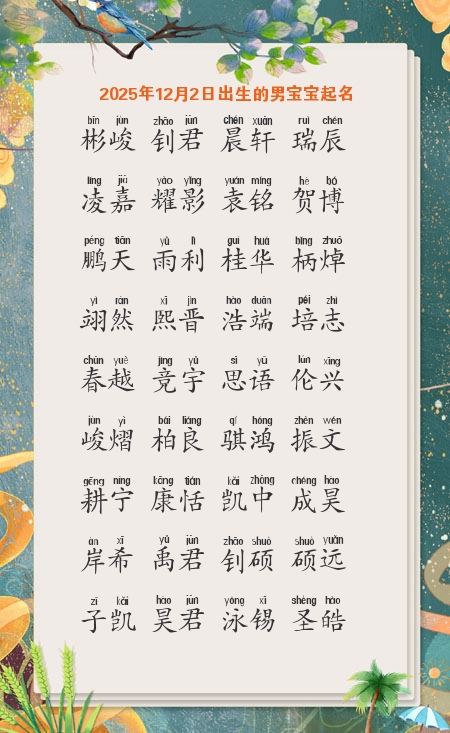 2025年12月2日出生的男宝宝起名
bīn jùn zhāo jūn chén xuān ruì chén
彬峻 钊君 晨轩 瑞辰
líng jiā yào yǐng yuán míng hè bó
凌嘉 耀影 袁铭 贺博
péng tiān yǔ lì guì huá bǐng zhuō
鹏天 雨利 桂华 柄焯
yì rán xī jìn hào duān péi zhì
翊然 熙晋 浩端 培志
chūn yuè jìng yǔ sī yǔ lún xīng
春越 竞宇 思语 伦兴
jùn yì bǎi liáng qí hóng zhèn wén
峻熠 柏良 骐鸿 振文
gēng níng kāng tián kǎi zhōng chéng hào
耕宁 康恬 凯中 成昊
àn xī yǔ jūn zhāo shuò shuò yuǎn
岸希 禹君 钊硕 硕远
zǐ kǎi hào jūn yǒng xī shèng hào
子凯 昊君 泳锡 圣皓